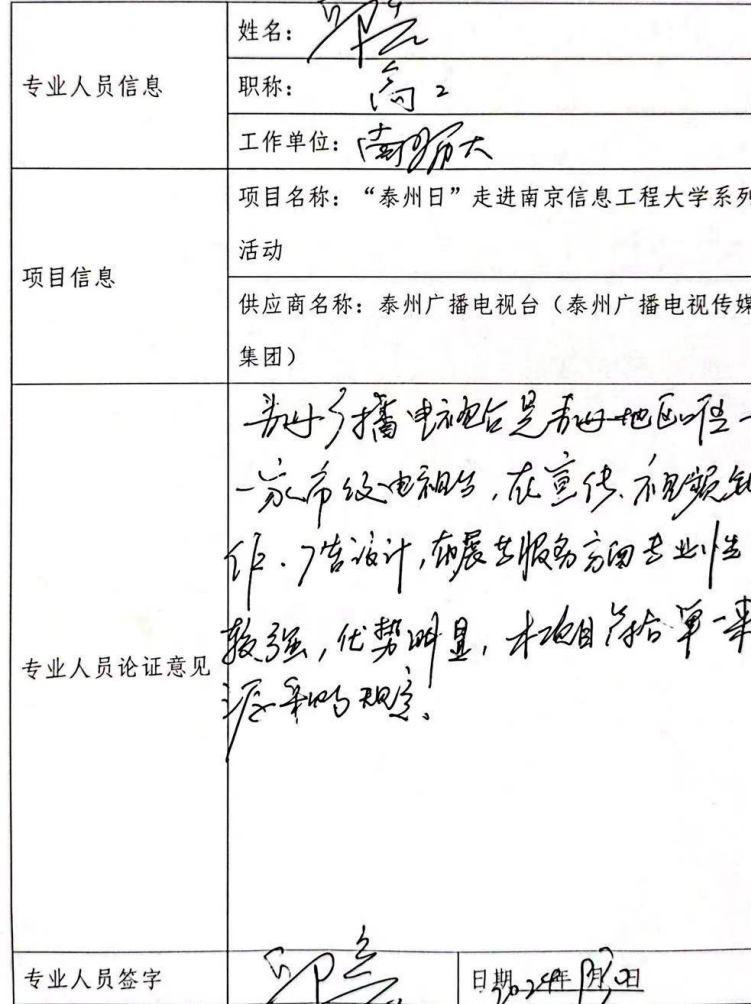 专业人员信息
姓名：
职称：高工
工作单位：南师大
项目信息
项目名称：“泰州日”走进南京信息工程大学系列
活动
供应商名称：泰州广播电视台（泰州广播电视传媒
集团）
专业人员论证意见
泰州广播电视台是泰州地区唯一
一家市级电视台，在宣传、视频制
作、广告设计，布展等服务方面专业性
较强，优势明显，本项目符合单一来
源采购规定。
专业人员签字
日期 2024年 月 日